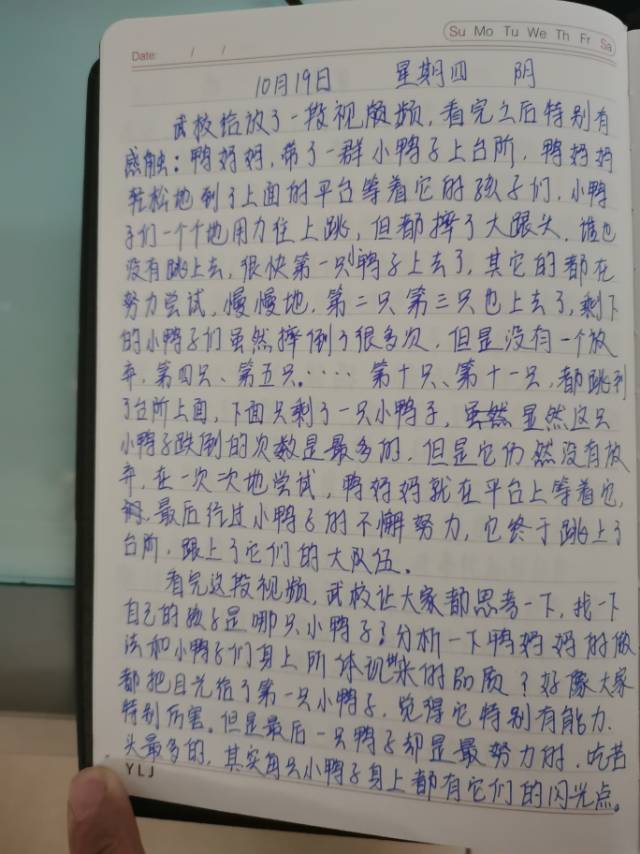 Date: / /
Su Mo Tu We Th Fr Sa
10月19日 星期四 阴
武校给放了一段视频,看完之后特别有
感触:鸭妈妈,带了一群小鸭子上台阶,鸭妈妈
轻松地到了上面的平台等着它的孩子们,小鸭
子们一个个地用力往上跳,但都摔了大跟头,谁也
没有跳上去,很快第一只小鸭子上去了,其它的都在
努力尝试,慢慢地,第二只第三只也上去了,剩下
的小鸭子们虽然摔倒了很多次,但是没有一个放
弃,第四只、第五只.····第十只、第十一只,都跳到
了台阶上面,下面只剩了一只小鸭子,虽然显然这只
小鸭子跌倒的次数是最多的,但是它仍然没有放
弃,在一次次地尝试,鸭妈妈就在平台上等着它,
最后经过小鸭子的不懈努力,它终于跳上了
台阶,跟上了它们的大队伍。
看完这段视频,武校让大家都思考一下,找一下
自己的孩子是哪只小鸭子?分析一下鸭妈妈的做
法和小鸭子们身上所体现出来的品质?好像大家
都把目光给了第一只小鸭子,觉得它特别有能力、
特别厉害。但是最后一只鸭子却是最努力的,吃苦
头最多的,其实每只小鸭子身上都有它们的闪光点。
YLJ